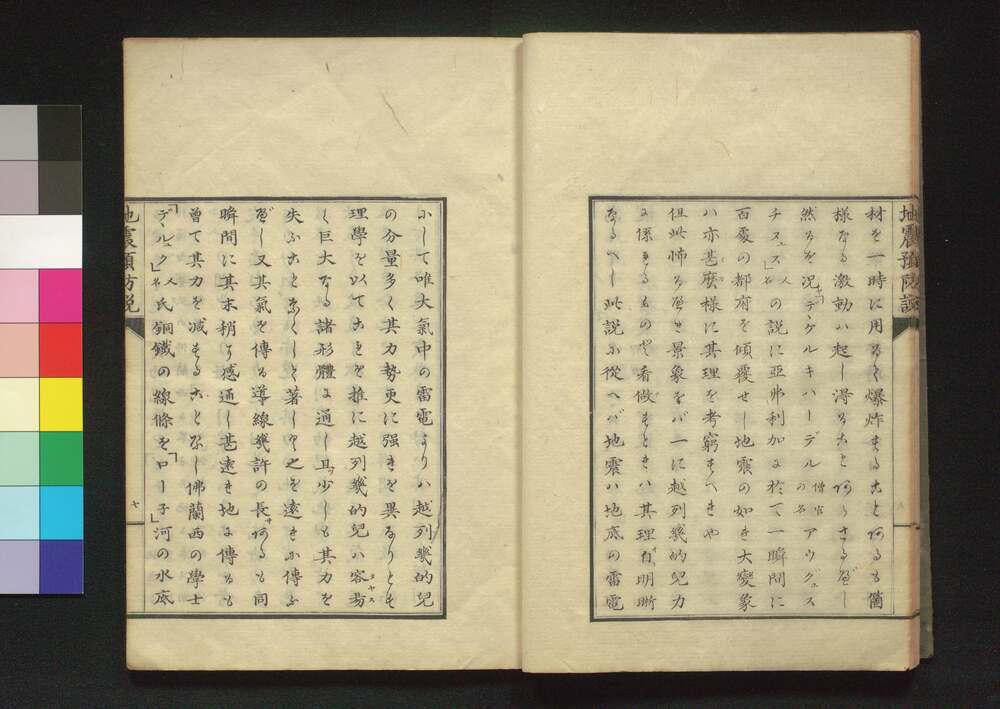 地震預防説
材を一時に用るゝ爆炸することあるも箇
様なる激動ハ起し得ることあらさるべし
然るを況「デンゲルキハーデル 僧官の名 アウグュス
チヌス」人名 の説に亞弗利加に於て一瞬間に
百處の都府を傾覆せし地震の如き大變象
ハ亦甚麼様に其理を考窮すへきや
但此怖るへき景象をバ一に越列幾的兒力
に係するものと看做すときハ其理自明晰
なるへし此説に從へバ地震ハ地底の雷電
にして唯大氣中の雷電よりハ越列幾的兒
の分量多く其力勢更に强きを異なりとす
理學を以てこれを推に越列幾的兒ハ容易
く巨大なる諸形體に通し且少しも其力を
失ふことなくして著しく之を遠きに傳ふ
べし又其氣を傳る導線幾許の長サあるも同
瞬間に其末梢に感通し甚遠き地に傳るも
曾て其力を减することなし佛蘭西の學士
「デ、ル、ク」人名 氏銅鐵の線條を「ロー子」河の水底
地震預防説
七